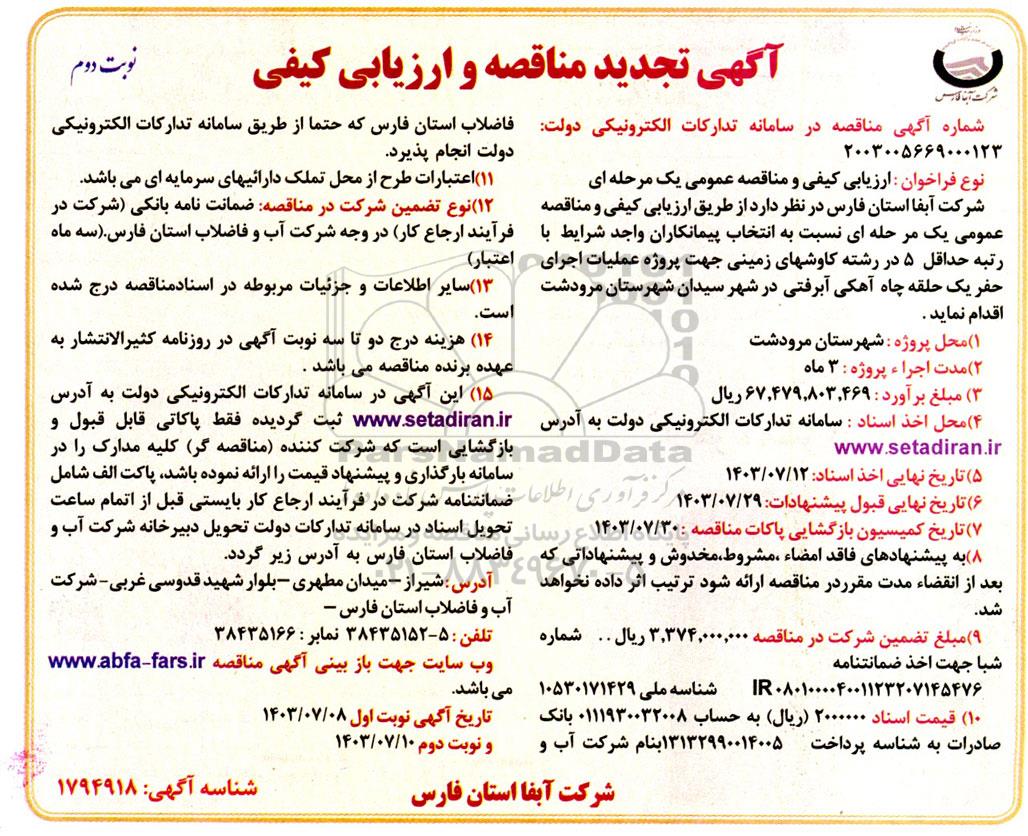 آگهی تجدید مناقصه و ارزیابی کیفی
نوبت دوم
شرکت آبفا فارس
شماره آگهی مناقصه در سامانه تدارکات الکترونیکی دولت:
۲۰۰۳۰۰۵۶۶۹۰۰۰۱۲۳
نوع فراخوان : ارزیابی کیفی و مناقصه عمومی یک مرحله ای
شرکت آبفا استان فارس در نظر دارد از طریق ارزیابی کیفی و مناقصه
عمومی یک مر حله ای نسبت به انتخاب پیمانکاران واجد شرایط با
رتبه حداقل ۵ در رشته کاوشهای زمینی جهت پروژه عملیات اجرای
حفر یک حلقه چاه آهکی آبرفتی در شهر سیدان شهرستان مرودشت
اقدام نماید .
۱)محل پروژه : شهرستان مرودشت
۲)مدت اجرا ء پروژه : ۳ ماه
۳) مبلغ برآورد : ۶۷,۴۷۹,۸۰۳,۴۶۹ ریال
۴)محل اخذ اسناد : سامانه تدارکات الکترونیکی دولت به آدرس
www.setadiran.ir
۵)تاریخ نهایی اخذ اسناد: ۱۴۰۳/۰۷/۱۲
۶)تاریخ نهایی قبول پیشنهادات: ۱۴۰۳/۰۷/۲۹
۷)تاریخ کمیسیون بازگشایی پاکات مناقصه : ۱۴۰۳/۰۷/۳۰
۸)به پیشنهادهای فاقد امضاء ،مشروط،مخدوش و پیشنهاداتی که
بعد از انقضاء مدت مقرردر مناقصه ارائه شود ترتیب اثر داده نخواهد
شد.
۹)مبلغ تضمین شرکت در مناقصه ۳,۳۷۴,۰۰۰,۰۰۰ ریال . . شماره
شبا جهت اخذ ضمانتنامه
IR ۰۸۰۱۰۰۰۰۴۰۰۱۱۲۳۲۰۷۱۴۵۴۷۶ شناسه ملی ۱۰۵۳۰۱۷۱۴۲۹
۱۰) قیمت اسناد ۲۰۰۰۰۰۰ (ریال) به حساب ۰۱۱۱۹۳۰۰۳۲۰۰۸ بانک
صادرات به شناسه پرداخت ۱۳۱۳۲۹۹۰۰۱۴۰۰۵بنام شرکت آب و
فاضلاب استان فارس که حتما از طریق سامانه تدارکات الکترونیکی
دولت انجام پذیرد.
۱۱)اعتبارات طرح از محل تملک دارائیهای سرمایه ای می باشد.
۱۲)نوع تضمین شرکت در مناقصه: ضمانت نامه بانکی (شرکت در
فرآیند ارجاع کار) در وجه شرکت آب و فاضلاب استان فارس.(سه ماه
اعتبار)
۱۳)سایر اطلاعات و جزئیات مربوطه در اسنادمناقصه درج شده
است.
۱۴) هزینه درج دو تا سه نوبت آگهی در روزنامه کثیرالانتشار به
عهده برنده مناقصه می باشد .
۱۵) این آگهی در سامانه تدارکات الکترونیکی دولت به آدرس
www.setadiran.ir ثبت گردیده فقط پاکاتی قابل قبول و
بازگشایی است که شرکت کننده (مناقصه گر) کلیه مدارک را در
سامانه بارگذاری و پیشنهاد قیمت را ارائه نموده باشد، پاکت الف شامل
ضمانتنامه شرکت در فرآیند ارجاع کار بایستی قبل از اتمام ساعت
تحویل اسناد در سامانه تدارکات دولت تحویل دبیرخانه شرکت آب و
فاضلاب استان فارس به آدرس زیر گردد.
آدرس : شیراز –میدان مطهری –بلوار شهید قدوسی غربی- شرکت
آب و فاضلاب استان فارس –
تلفن : ۵-۳۸۴۳۵۱۵۲ نمابر : ۳۸۴۳۵۱۶۶
وب سایت جهت باز بینی آگهی مناقصه www.abfa-fars.ir
می باشد.
تاریخ آگهی نوبت اول ۱۴۰۳/۰۷/۰۸
و نوبت دوم ۱۴۰۳/۰۷/۱۰
شرکت آبفا استان فارس
شناسه آگهی: ۱۷۹۴۹۱۸
ParsNamadData
پایگاه اطلاع رسانی مناقصه و مزایده